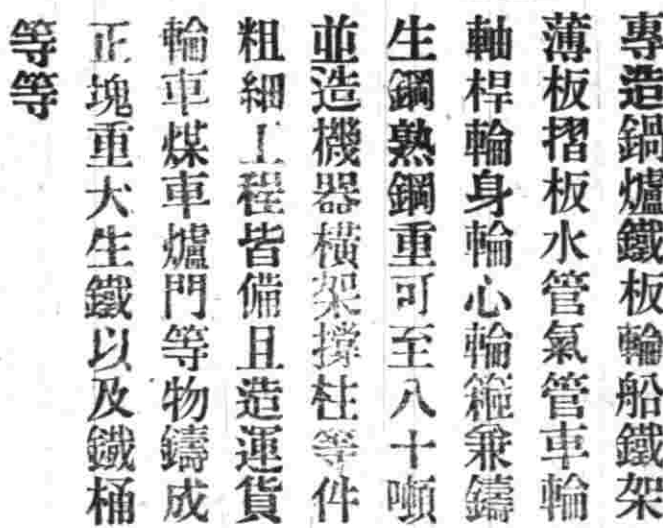 專造鍋爐鐵板輪船鐵架
薄板摺板水管氣管車輪
軸桿輪身輪心輪箍兼鑄
生鋼熟鋼重可至八十噸
並造機器橫架撐柱等件
粗細工程皆備且造運貨
輪車煤車爐門等物鑄成
正塊重大生鐵以及鐵桶
等等